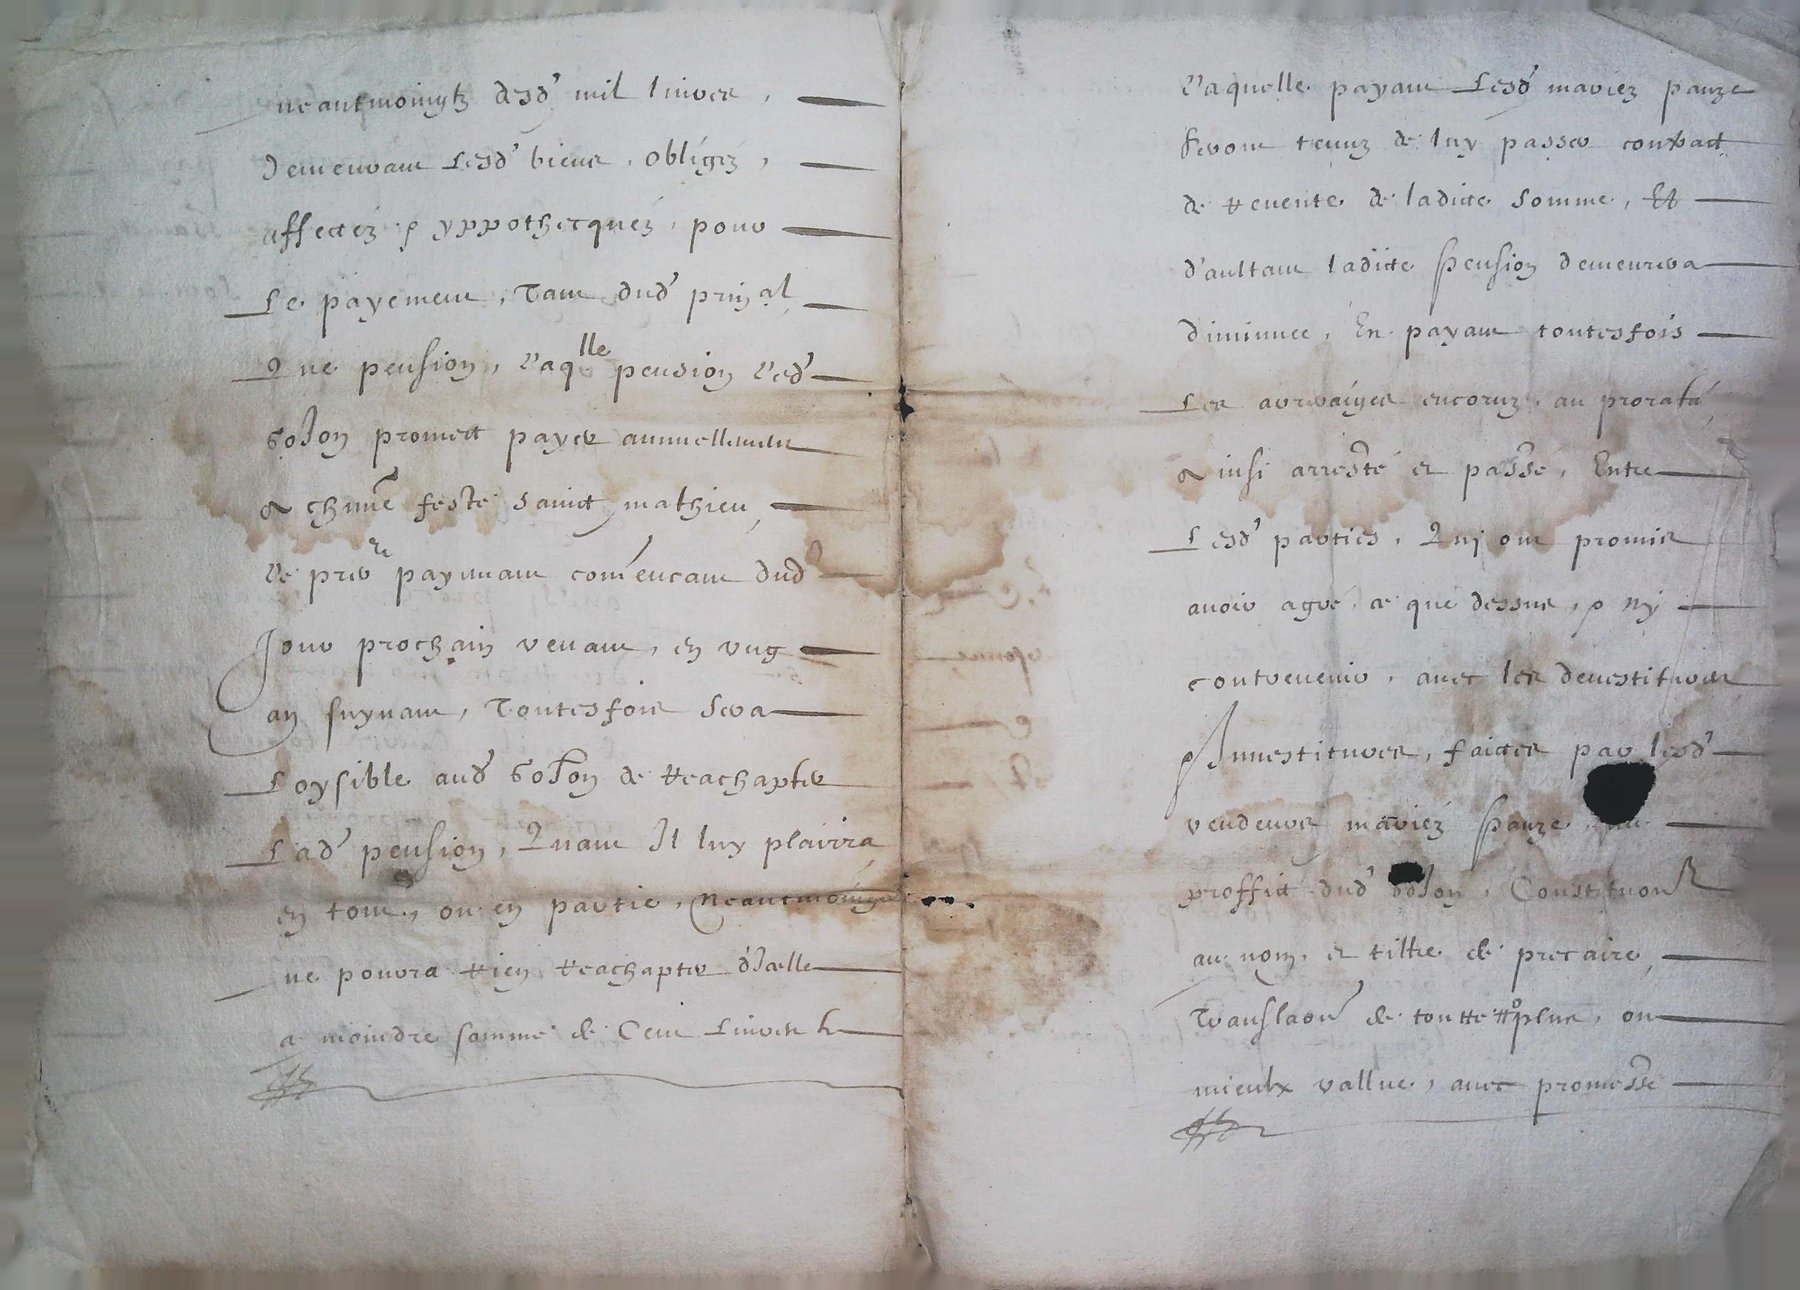 neantmoingtz desd' mil livres,
demeurant lesd' biens, obligez,
affectéz & yppothecquéz, pour
Le payement, Tant dud' prinal
Que pension, laqlle pension led'
promect payer annuellement
a chune feste sainct mathieu,
le prier payemant comencant dud'
Jour prochain venant, en ung
an suyvant, Toutesfois sera
Loysible aud' de Reachapter
Lad' pension, Quant Il luy plairra
en tout, ou en partie, Neantmoings
ne pourra Rien Reachapter d'Icelle
a moindre somme de Cent Livres
laquelle payant Lesd' mariez pauze
seront tenuz de luy passer contract
de Revente de ladicte somme, Et
d'aultant ladicte pension demeurera
diminuee, En payant toutesfois
Les arreraiges encoruz, au prorata,
Ainsi arresté et passé, Entre
Lesd' parties, Quj ont promis
avoir agré ce que dessus, & nj
contrevenir, avec les devestitures
& Investitures, faictes par lesd'
vendeurs mariéz pauze,
proffict dud' Constituon
au nom, et tiltre de precaire,
Translaon de toutte plus, ou
mieulx vallue, avec promesse